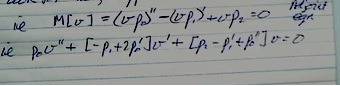 ie M[v] = (vp₀)″ - (vp₁)′ + vp₂ = 0 Adjoint eqn.
ie p₀v″ + [-p₁+2p₀′]v′ + [p₂-p₁′+p₀″]v = 0